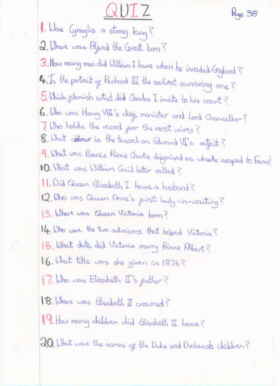 QUIZ
Page 38
1. Was Cynegils a strong king?
2. Where was Alfred the Great born?
3. How many men did William I have when he invaded England?
4. Is the portrait of Richard II the earliest surviving one?
5. Which Flemish artist did Charles I invite to his court?
6. Who was Henry VIII's clergy minister and Lord Chancellor?
7. Who holds the record for the most wives?
8. What colour is the on Edward VI's outfit?
9. What was Bonnie Prince Charlie disguised as whilst escaped to France?
10. What was William Cecil later called?
11. Did Queen Elizabeth I have a husband?
12. Who was Queen Anne's first lady-in-waiting?
13. When was Queen Victoria born?
14. Who were the two advisors that helped Victoria?
15. What date did Victoria marry Prince Albert?
16. What title was she given in 1876?
17. Who was Elizabeth II's father?
18. Where was Elizabeth II crowned?
19. How many children did Elizabeth II have?
20. What were the names of the Duke and Duchess's children?